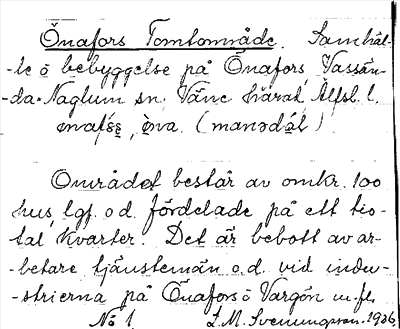 Önafors Tomtområde. Samhäl-
-le o bebyggelse på Önafors, Vassän-
da-Naglum sn, Väne härad, Älfsb. l.
Området består av omkr. 100
hus, lgf. o.d. fördelade på ett tio-
tal kvarter. Det är bebott av ar-
-betare tjänstemän o.d. vid indu-
-strierna på Önafors o Vargön m.fl.
No 1. L.M. Svenungsson. 1936